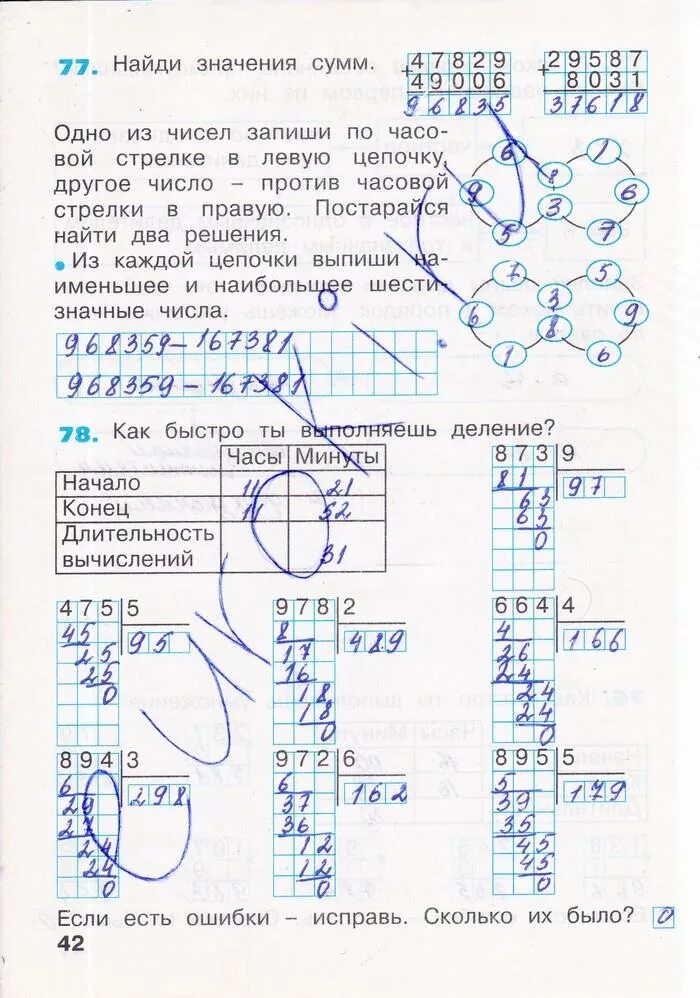 77. Найди значения сумм.
+ 47829
49006
96835
+ 29587
8031
37618
Одно из чисел запиши по часо-
вой стрелке в левую цепочку,
другое число – против часовой
стрелки в правую. Постарайся
найти два решения.
• Из каждой цепочки выпиши на-
именьшее и наибольшее шести-
значные числа.
6 1
9 8 6
5 3 7
7 5
6 3 9
1 8 6
968359 – 167381
968359 – 167381
78. Как быстро ты выполняешь деление?
Часы Минуты
Начало 11 21
Конец 11 52
Длительность
вычислений 31
873 9
81 97
63
63
0
475 5
45 95
25
25
0
978 2
8 489
17
16
18
18
0
664 4
4 166
26
24
24
24
0
894 3
6 298
29
27
24
24
0
972 6
6 162
37
36
12
12
0
895 5
5 179
39
35
45
45
0
Если есть ошибки – исправь. Сколько их было? 0
42